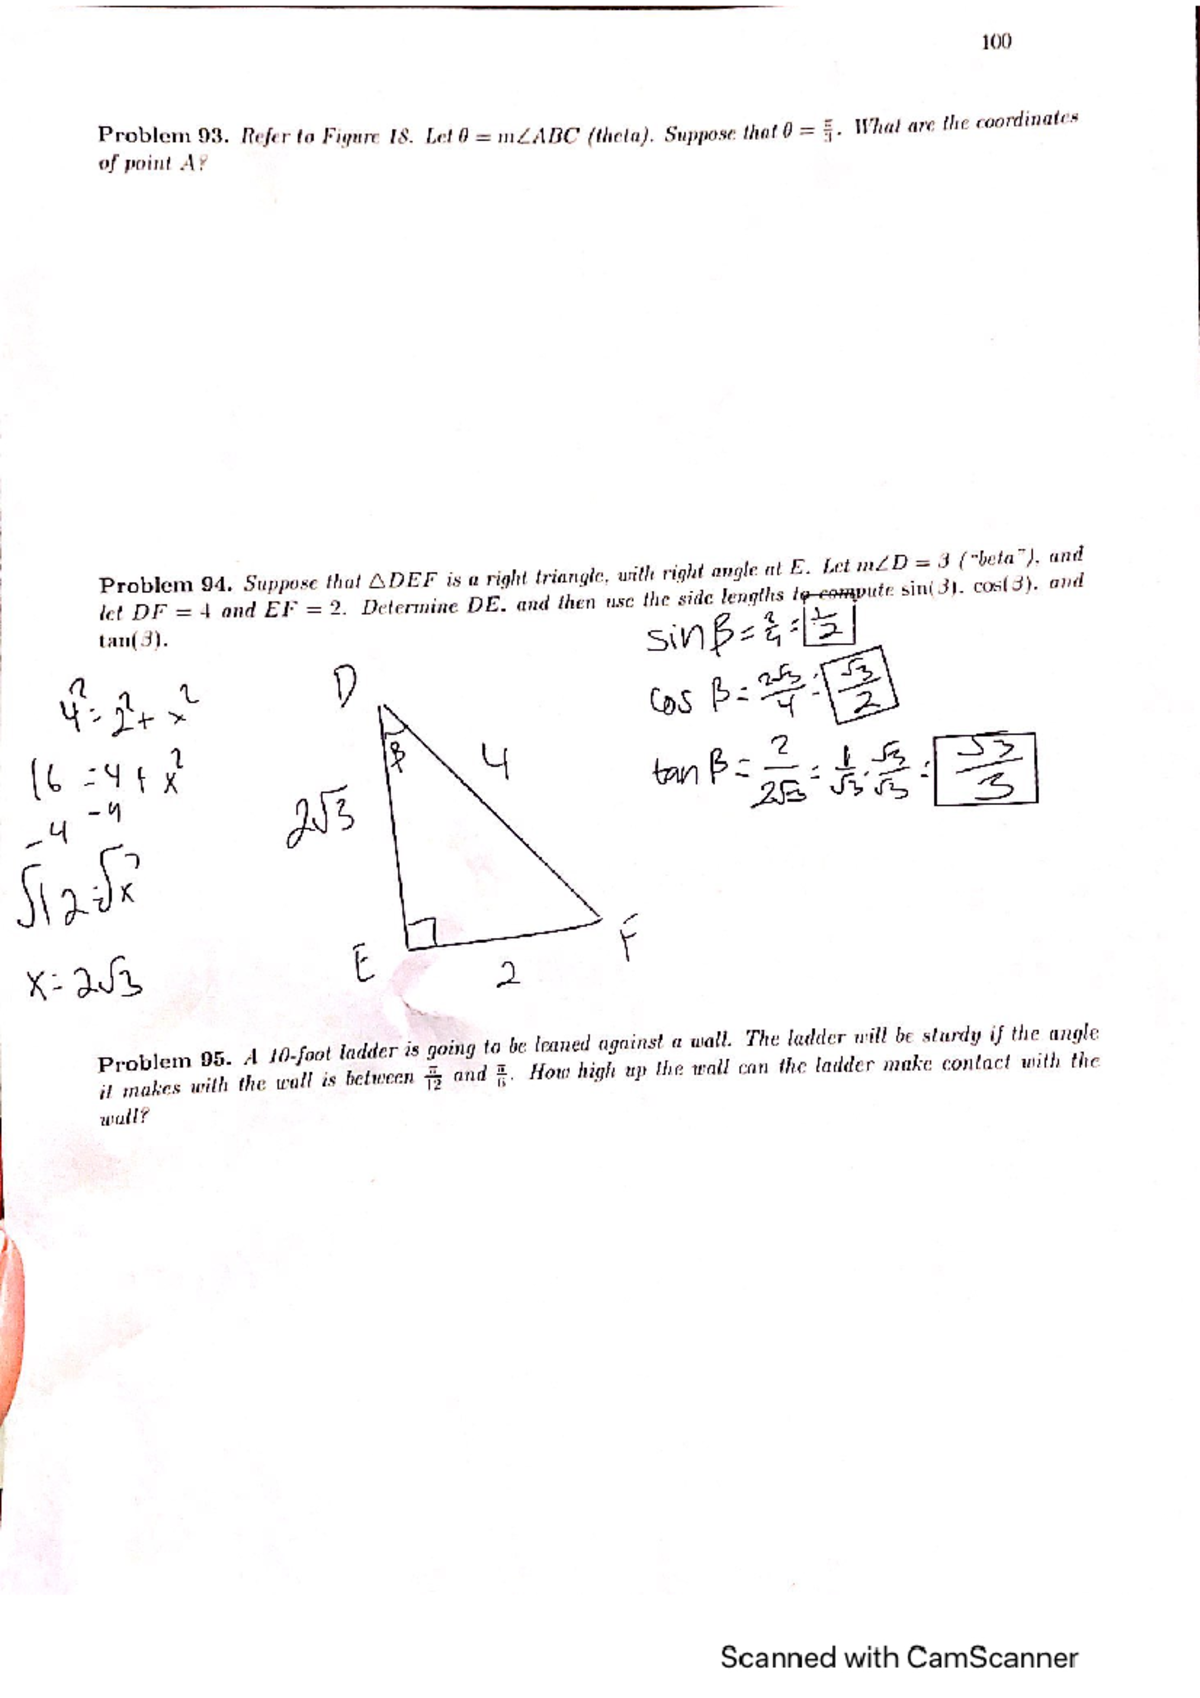 100
Problem 93. Refer to Figure 18. Let θ = m∠ABC (theta). Suppose that θ = π/4. What are the coordinates
of point A?
Problem 94. Suppose that △DEF is a right triangle, with right angle at E. Let m∠D = β ("beta"), and
let DF = 4 and EF = 2. Determine DE, and then use the side lengths to compute sin(β), cos(β), and
tan(β).
sin β = 2/4 = 1/2
cos β = 2√3/4 = √3/2
tan β = 2/2√3 = 1/√3 · √3/√3 = √3/3
4² = 2² + x²
16 = 4 + x²
-4 -4
√12 = √x²
x = 2√3
D
β
4
2√3
E
2
F
Problem 95. A 10-foot ladder is going to be leaned against a wall. The ladder will be sturdy if the angle
it makes with the wall is between π/12 and π/6. How high up the wall can the ladder make contact with the
wall?
Scanned with CamScanner